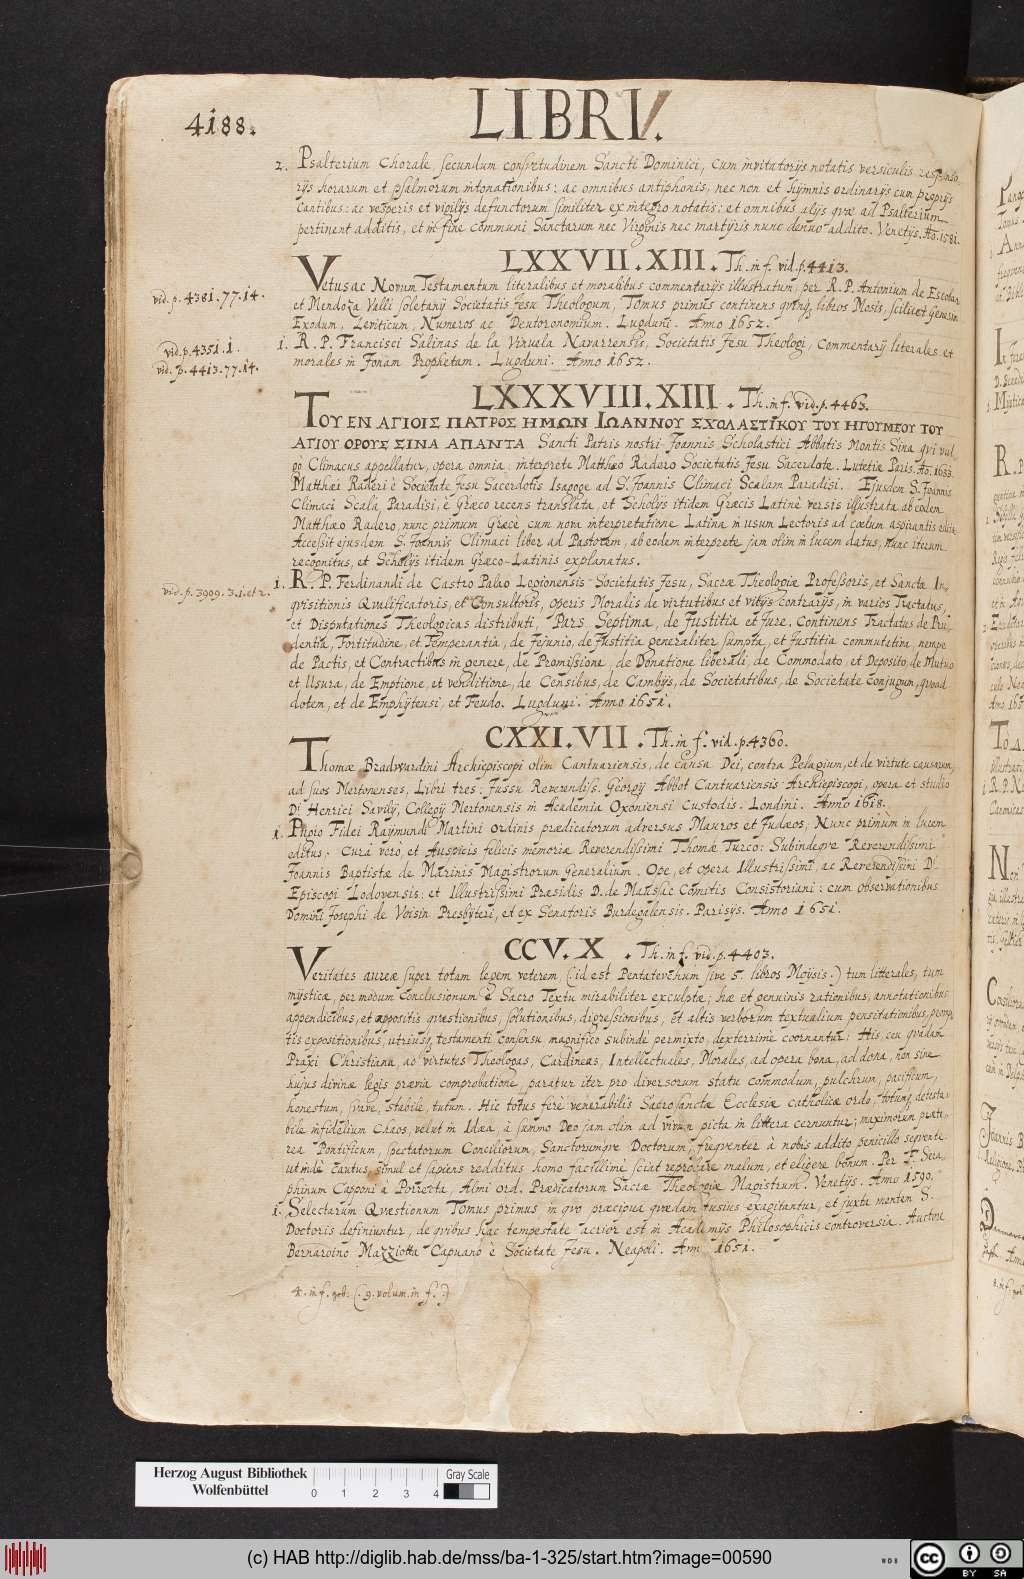 4188.
LIBRI.
2. Psalterium Chorale, secundum consvetudinem Sancti Dominici, cum invitatorijs notatis versiculis responso-
rijs horarum et psalmorum intonationibus: ac omnibus antiphonis, nec non et hymnis ordinarijs cum proprijs
Cantibus: ac vesperis et vigilijs defunctorum similiter ex integro notatis: et omnibus alijs quæ ad Psalterium
pertinent additis, et in fine communi Sanctarum nec Virginis nec martyris nunc denuo addito. Venetijs. Ao. 1581.
LXXVII. XIII. Th. in f. vid. p. 4413.
vid. p. 4381. 77. 14.
Vetus ac Novum Testamentum literalibus et moralibus commentarijs illustratum, per R. P. Antonium de Escobar
et Mendoza Valli soletanũ Societatis Jesu Theologum, Tomus primus continens quinq; libros Mosis, scilicet Genesin
Exodum, Leviticum, Numeros ac Deutoronomium. Lugduni. Anno 1652.
vid. p. 4351. 1.
vid. p. 4413. 77. 14.
1. R. P. Francisci Salinas de la Vinuela Navarrensis, Societatis Jesu Theologi, Commentarij literales et
morales in Jonam Prophetam. Lugduni. Anno 1652.
LXXXVIII. XIII. Th. in f. vid. p. 4463.
ΤΟΥ ΕΝ ΑΓΙΟΙΣ ΠΑΤΡΟΣ ΗΜΩΝ ΙΩΑΝΝΟΥ ΣΧΟΛΑΣΤΙΚΟΥ ΤΟΥ ΗΓΟΥΜΕΟΥ ΤΟΥ
ΑΓΙΟΥ ΟΡΟΥΣ ΣΙΝΑ ΑΠΑΝΤΑ Sancti Patris nostri Joannis Scholastici Abbatis Montis Sina qvi vul
go Climacus appellatur, opera omnia: interprete Matthæo Radero Societatis Jesu Sacerdote. Lutetiæ Paris. Ao. 1633.
Matthæi Raderi è Societate Jesu Sacerdotis Isagoge ad S. Joannis Climaci Scalam Paradisi. Ejusdem S. Joannis
Climaci Scala Paradisi, è Græco recens translata, et Scholijs itidem Græcis Latinè versis illustrata, ab eodem
Matthæo Radero, nunc primum Græcè, cum nova interpretatione Latina in usum Lectoris ad cœlum aspirantis edita.
Accessit ejusdem S. Joannis Climaci liber ad Pastorem, ab eodem interprete jam olim in lucem datus, nunc iterum
recognitus, et Scholijs itidem Græco-Latinis explanatus.
vid. p. 3909. 3. 1. et 2.
1. R. P. Ferdinandi de Castro Palao Legionensis Societatis Jesu, Sacræ Theologiæ Professoris, et Sanctæ In-
qvisitionis Qvalificatoris, et Consultoris, operis Moralis de virtutibus et vitijs contrarijs, in varios Tractatus,
et Disputationes Theologicas distributi, Pars Septima, de Justitia et Jure. Continens Tractatus de Pru-
dentia, Fortitudine, et Temperantia, de Jejunio, de Justitia generaliter sumpta, et Justitia commutativa, nempe
de Pactis, et Contractibus in genere, de Promissione, de Donatione liberali, de Commodato, et Deposito, de Mutuo
et Usura, de Emptione, et venditione, de Censibus, de Cambijs, de Societatibus, de Societate Conjugum, qvoad
dotem, et de Emphÿteusi, et Feudo. Lugduni. Anno 1651.
CXXI. VII. Th. in f. vid. p. 4360.
Thomæ Bradwardini Archiepiscopi olim Cantuariensis, de Causa Dei, contra Pelagium, et de virtute causarum,
ad suos Mertonenses, Libri tres: Jussu Reverendiss. Georgij Abbot Cantuariensis Archiepiscopi, opera et studio
D. Henrici Savilij, Collegij Mertonensis in Academia Oxoniensi Custodis. Londini. Anno 1618.
1. Pugio Fidei Raymundi Martini Ordinis prædicatorum adversus Mauros et Judæos; Nunc primùm in lucem
editus; Curâ verò, et Auspicijs felicis memoriæ Reverendissimi Thomæ Turco: Subindeqve Reverendissimi
Joannis Baptistæ de Marinis Magistrorum Generalium. Ope, et opera Illustrissimi, ac Reverendissimi D.
Episcopi Lodovensis: et Illustrissimi Præsidis D. de Maussac Comitis Consistoriani: cum observationibus
Domini Josephi de Voisin Presbyteri, et ex Senatoris Burdegalensis. Parisijs. Anno 1651.
CCV. X. Th. in f. vid. p. 4403.
Veritates aureæ super totam legem veterem (: id est Pentatevchum sive 5. libros Moÿsis :) tum litterales, tum
mÿsticæ, per modum Conclusionum è Sacro Textu mirabiliter exculptæ; hæ et genuinis rationibus, annotationibus
appendicibus, et appositis qvæstionibus, solutionibus, digressionibus, et altis verborum textualium pensitationibus, peropta-
tis expositionibus, utriusq; testamenti consensu magnifico subinde permixto, dexterrimè coornantur: His, ceu qvadam
Praxi Christiana, ad virtutes Theologas, Cardineas, Intellectuales, Morales, ad opera bona, ad dona, non sine
hujus divinæ legis prævia comprobatione, paratur iter pro diversorum statu commodum, pulchrum, pacificum,
honestum, suave, stabile, tutum. Hic totus ferè venerabilis Sacrosanctæ Ecclesiæ catholicæ ordo, totumq; detesta-
bile infidelium Chaos, velut in Idæa, à summo Deo jam olim ad vivum picta in littera cernuntur; maximorum præte-
rea Pontificum, spectatorum Conciliorum, Sanctorumqve Doctorum, freqventer à nobis addito penicillo seqvente.
ut inde cautus simul et sapiens redditus homo facillimè sciat reprobare malum, et eligere bonum. Per F. Sera-
phinum Capponi à Porrecta, Almi Ord. Prædicatorum Sacræ Theologiæ Magistrum. Venetijs. Anno 1590.
1. Selectarum Qvæstionum Tomus primus in qvo præcipua qvædam fusius exagitantur, et juxta mentem S.
Doctoris definiuntur, de qvibus hac tempestate acrior est in Academijs Philosophicis controversia. Auctore
Bernardino Mazziotta Capuano è Societate Jesu. Neapoli. Anno 1651.
4. in f. (: 9. volum. in f. :)
Herzog August Bibliothek
Wolfenbüttel
0 1 2 3 4
Gray Scale
(c) HAB http://diglib.hab.de/mss/ba-1-325/start.htm?image=00590
WDB
cc BY SA